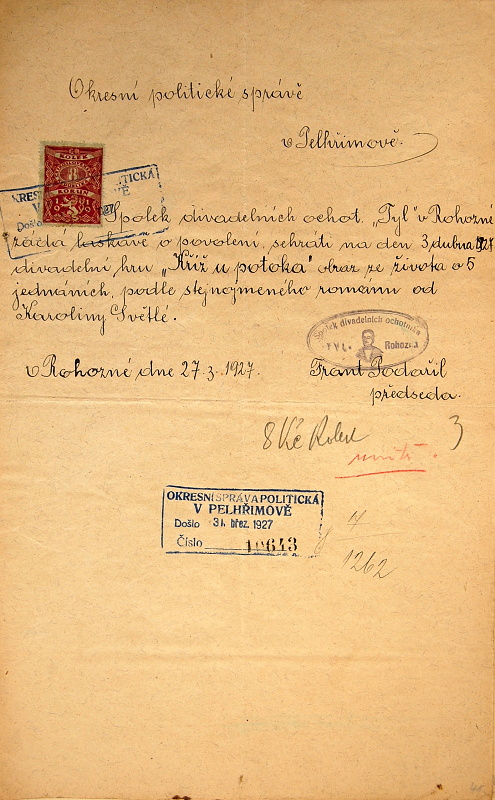 Okresní politické správě
v Pelhřimově.
KOLEK
8
KORUN
OKRESNÍ SPRÁVA POLITICKÁ
V PELHŘIMOVĚ
Došlo
Spolek divadelních ochot. „Tyl" v Rohozné
žádá laskavě o povolení, sehráti na den 3. dubna 1927
divadelní hru „Kříž u potoka" obraz ze života o 5
jednáních, podle stejnojmeného románu od
Karoliny Světlé.
Spolek divadelních ochotníků
TYL
Rohozná
v Rohozné dne 27.3.1927.
Frant Podařil
předseda.
8 Kč Kolek
3
OKRESNÍ SPRÁVA POLITICKÁ
V PELHŘIMOVĚ
Došlo 31. břez. 1927
Číslo 10643
4
1262